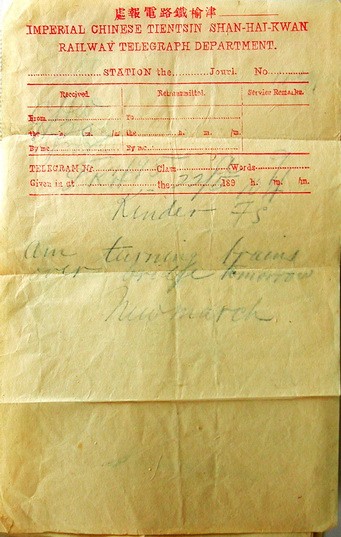 處報電路鐵榆津
IMPERIAL CHINESE TIENTSIN SHAN-HAI-KWAN
RAILWAY TELEGRAPH DEPARTMENT.
STATION the Jourl. No
Received. Retransmitted. Service Remarks.
From To
the h. m. /m the h. m. /m.
By me By me
TELEGRAM Nr. Class Words
Given in at the 189 h. /m. /m.
Kinder FS
Am turning trains
over bridge tomorrow
Newmarch.